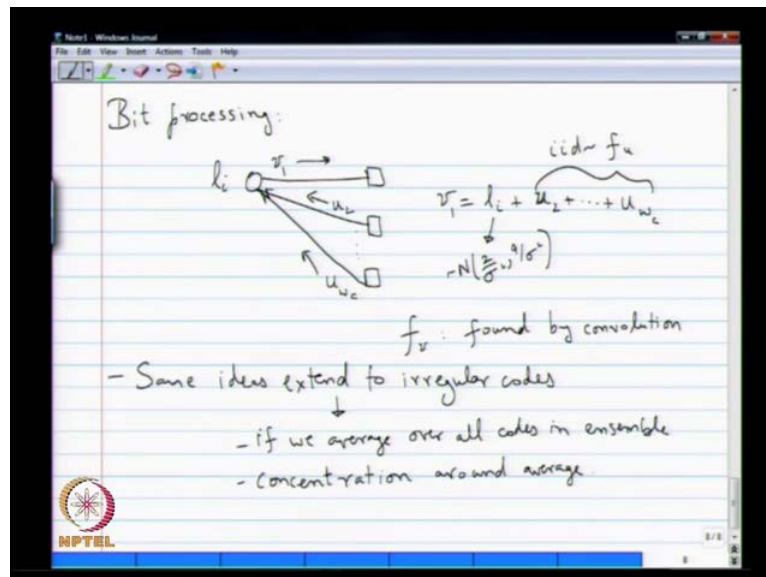 Note1 - Windows Journal
File Edit View Insert Actions Tools Help
Bit processing:
iid~ f_u
l_i v_1 → v_1 = l_i + u_2 + ... + u_{w_c}
← u_2
u_{w_c} ~N(2/σ², 4/σ²)
f_v : found by convolution
- Same ideas extend to irregular codes
- if we average over all codes in ensemble
- concentration around average.
NPTEL
8/8
8